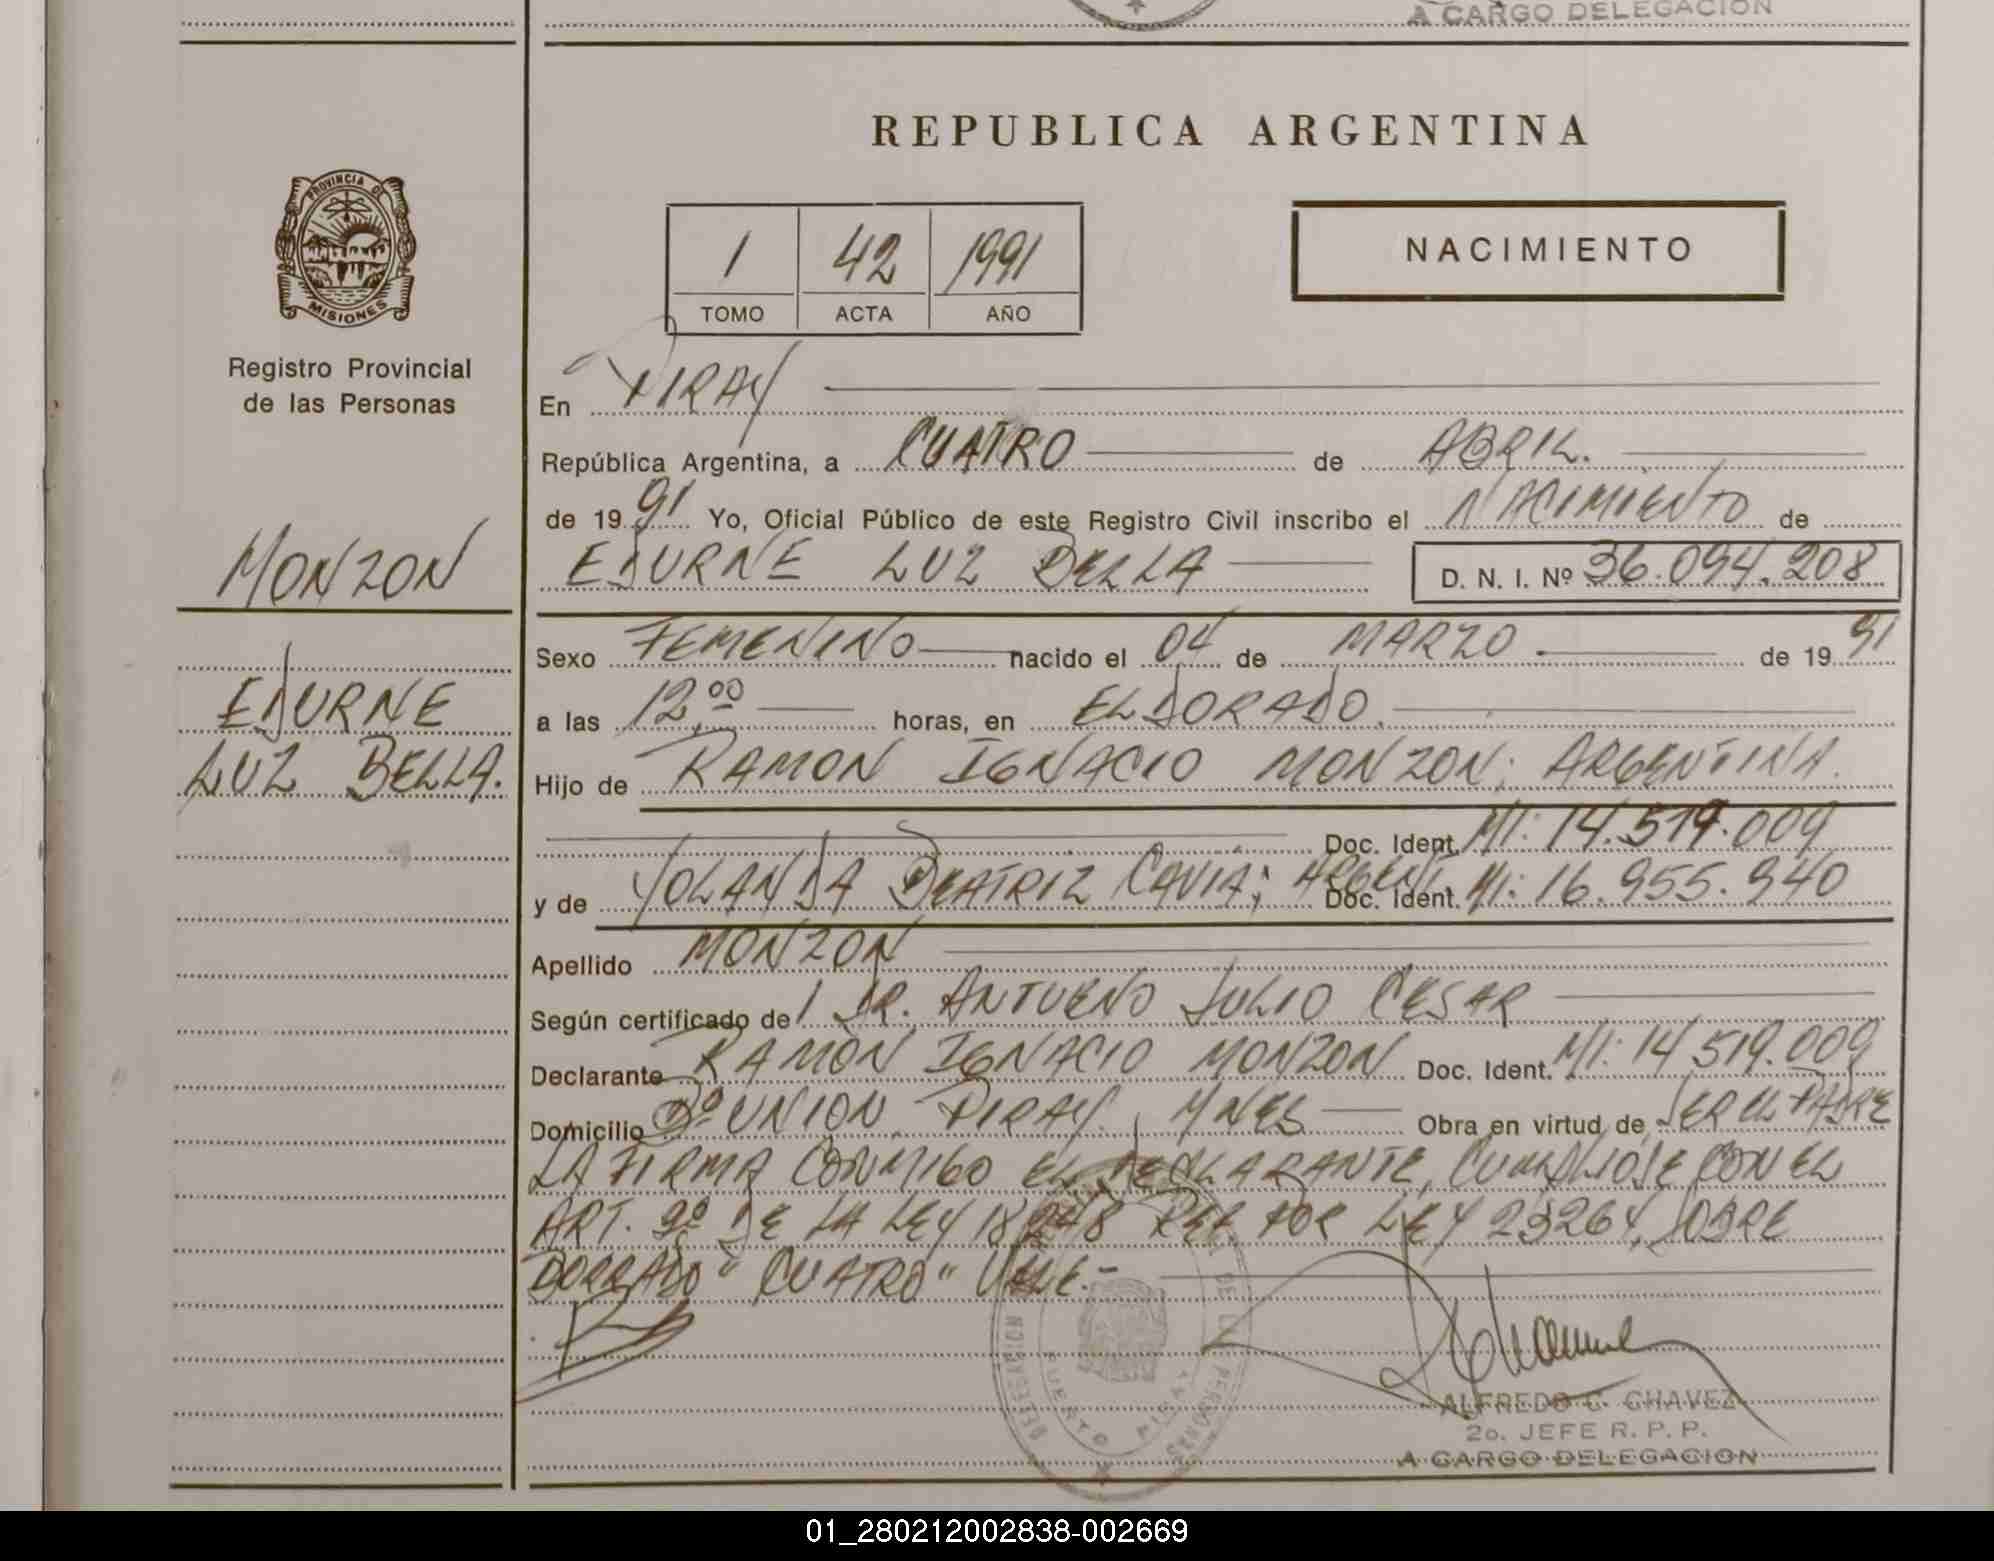 A CARGO DELEGACION
REPUBLICA ARGENTINA
PROVINCIA DE
MISIONES
Registro Provincial
de las Personas
1 42 1991
TOMO ACTA AÑO
NACIMIENTO
En PIRAY
República Argentina, a CUATRO de ABRIL.
de 1991 Yo, Oficial Público de este Registro Civil inscribo el NACIMIENTO de
EDURNE LUZ BELLA D. N. I. Nº 36.094.208
MONZON
EDURNE
LUZ BELLA.
Sexo FEMENINO nacido el 04 de MARZO de 1991
a las 12,00 horas, en ELDORADO.
Hijo de RAMON IGNACIO MONZON; ARGENTINA.
Doc. Ident. MI: 14.519.009
y de YOLANDA BEATRIZ CAVIA; ARGENT. Doc. Ident. MI: 16.955.940
Apellido MONZON
Según certificado de/ DR. ANTUENO JULIO CESAR
Declarante RAMON IGNACIO MONZON Doc. Ident. MI: 14.519.009
Domicilio Bº UNION. PIRAY. MNES Obra en virtud de SER EL PADRE
LA FIRMA CONMIGO EL DECLARANTE, CUMPLIOSE CON EL
ART. 2º DE LA LEY 18248 REF POR LEY 23264, SOBRE
BORRADO "CUATRO" VALE.-
DELEGACION PUERTO PIRAY
DE LAS PERSONAS
ALFREDO C. CHAVEZ
2o. JEFE R. P. P.
A CARGO DELEGACION
01_280212002838-002669